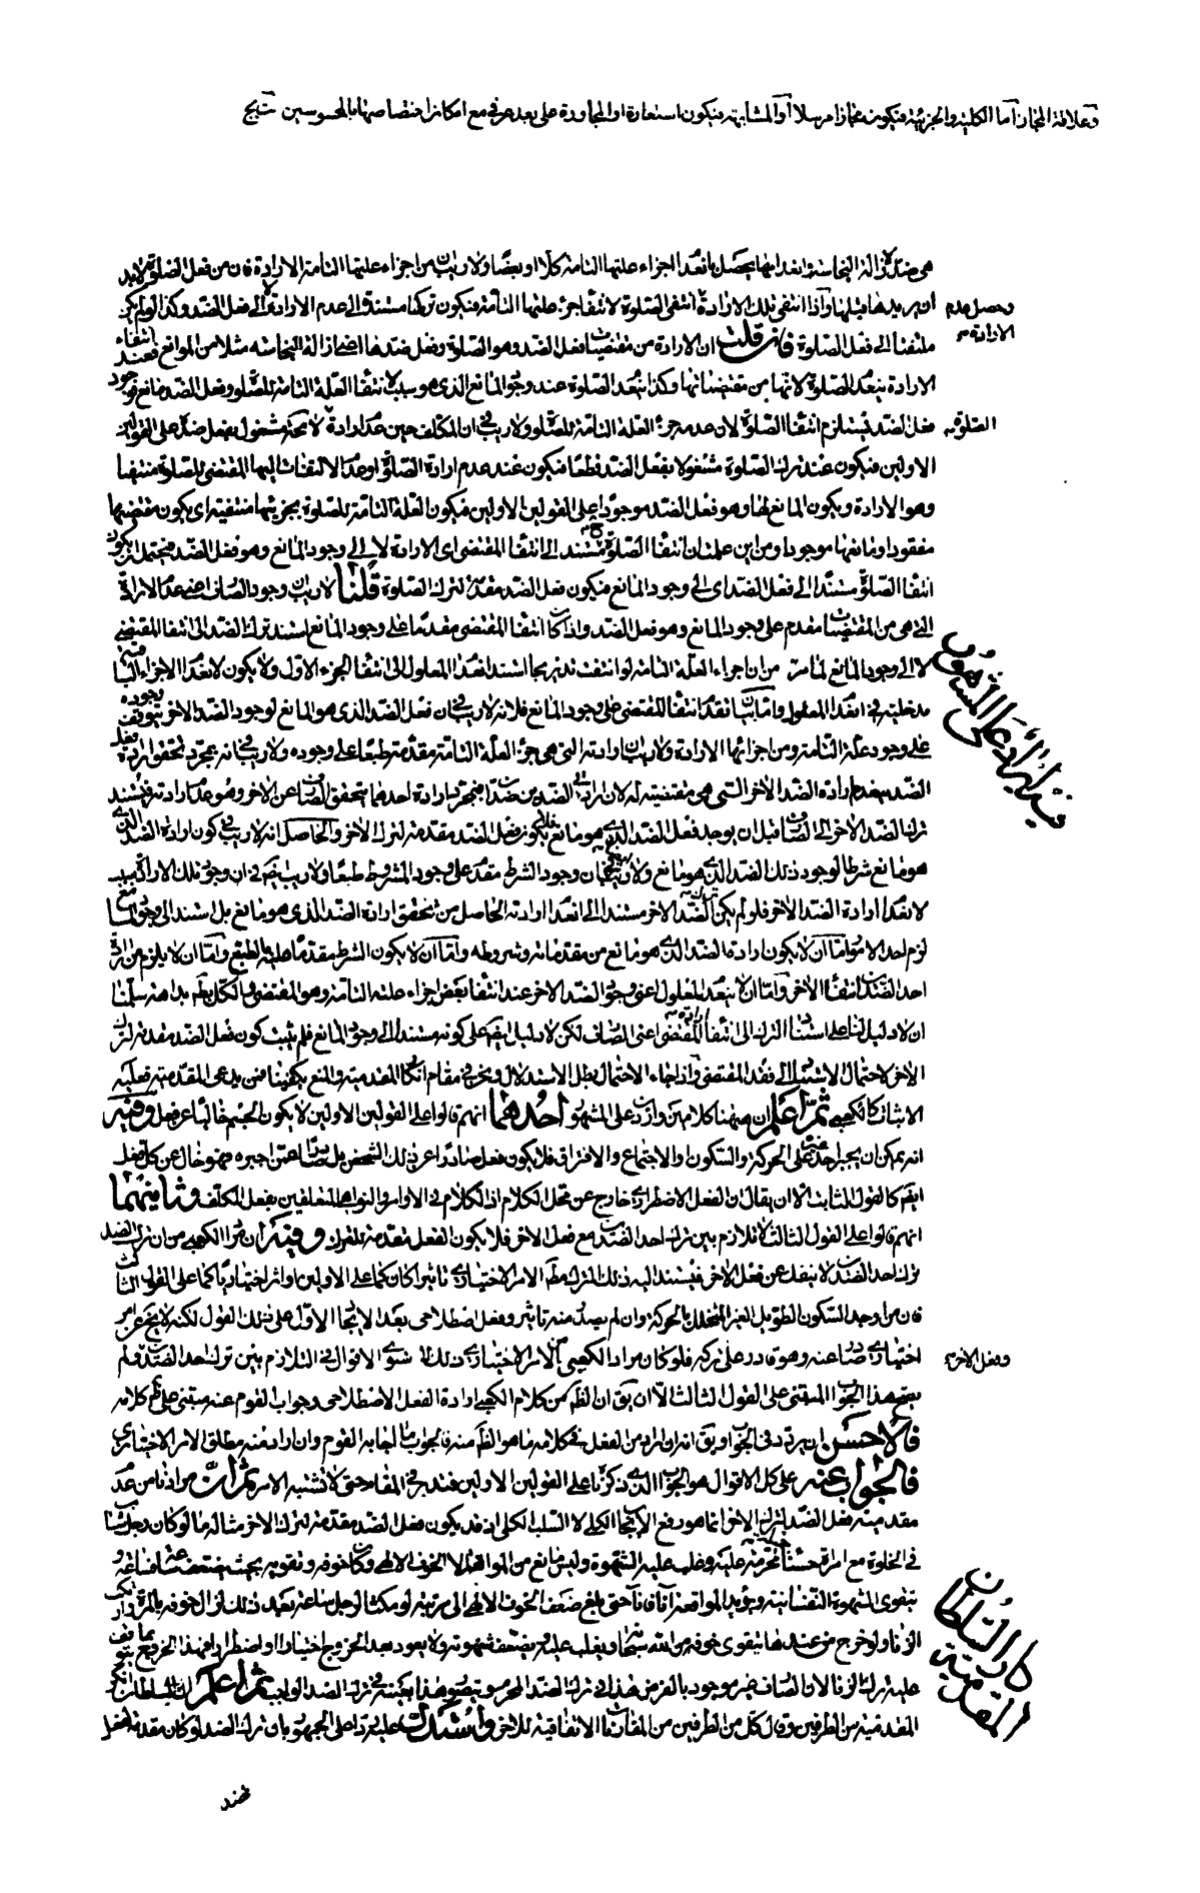 وعلاقة المجاز اما الكلية والجزئية فيكون مجازا مرسلا او المشابهة فيكون استعارة او المجاورة على بعد عرفي مع امكان اختصاصها بالمحسوسين
هي ضد لازالة النجاسة وانعدامها يحصل بانعدام اجزاء علتها التامة كلا او بعضا ولا ريب ان من اجزاء علتها التامة الارادة فان من فعل الصلوة لابد
ان يريدها قبلها واذا انتفى تلك الارادة انتفى الصلوة لانتفاء جزء علتها التامة فيكون تركها مستندا الى عدم الارادة لا الى فعل الضد وكذا لو لم يكن
وحصل عدم الارادة
ملتفتا الى فعل الصلوة فان قلت ان الارادة من مقتضيات فعل الضد وهو الصلوة وفعل ضدها اعني ازالة النجاسة مثلا من الموانع فعند انتفاء
الارادة ينعدم الصلوة لانها من مقتضياتها وكذا ينعدم الصلوة عند وجود المانع الذي هو سبب لانتفاء العلة التامة للصلوة وفعل الضد مانع فوجود
فعل الضد يستلزم انتفاء الصلوة لان عدمه جزء العلة التامة للصلوة ولا ريب في ان المكلف حين عدم ارادة لا محة مشغول بفعل ضد على القولين
الصلوة
الاولين فيكون عند ترك الصلوة مشغولا بفعل الضد قطعا فيكون عند عدم ارادة الصلوة او عدم الالتفات اليها المقتضي للصلوة منتفيا
وهو الارادة ويكون المانع لها وهو فعل الضد موجودا على القولين الاولين فيكون العلة التامة للصلوة بجزئيها منتفية اى يكون مقتضيها
مفقودا ومانعها موجودا ومن اين علمت ان انتفاء الصلوة مستند الى انتفاء المقتضي اى الارادة لا الى وجود المانع وهو فعل الضد فيحتمل ان يكون
انتفاء الصلوة مستندا الى فعل الضد اى الى وجود المانع فيكون فعل الضد مقدمة لترك الصلوة قلنا لا ريب ان وجود الصارف اعني عدم الارادة
التي هي من المقتضيات مقدم على وجود المانع وهو فعل الضد واذا كان انتفاء المقتضي مقدما على وجود المانع استند ترك الضد الى انتفاء المقتضي
لا الى وجود المانع لما مر من ان اجزاء العلة التامة لو انتفت تدريجا استند انعدام المعلول الى انتفاء الجزء الاول ولا يكون لانعدام الاجزاء الباقية
فيه ايراد على المشهور
مدخلية في انعدام المعلول واما بيان تقدم انتفاء المقتضي على وجود المانع فلانه لا ريب في ان فعل الضد الذي هو المانع لوجود الضد الاخر يتوقف وجوده
على وجود علته التامة ومن اجزائها الارادة ولا ريب ان ارادته التي هي جزء العلة التامة مقدمة طبعا على وجوده ولا ريب في انه بمجرد تحقق ارادة فعل
الضد ينعدم ارادة الضد الاخر التي هي مقتضية له لان ارادتي الضدين ضدان فبمجرد ارادة احدهما يتحقق الصارف عن الاخر وهو عدم ارادته فيستند
ترك الضد الاخر الى الصارف قبل ان يوجد فعل الضد الذي هو مانع فلا يكون فعل الضد مقدمة لترك الاخر والحاصل انه لا ريب في كون ارادة الضد الذي
هو مانع شرطا لوجود ذلك الضد الذي هو مانع ولا ريب في ان وجود الشرط مقدم على وجود المشروط طبعا ولا ريب ايضا في ان وجود تلك الارادة سبب
لانعدام ارادة الضد الاخر فلو لم يكن ترك الضد الاخر مستندا الى انعدام ارادته الحاصل من تحقق ارادة الضد الذي هو مانع بل استند الى وجود المانع
لزم احد الامور اما ان لا يكون ارادة الضد الذي هو مانع من مقدماته وشروطه واما ان لا يكون الشرط مقدما عليه بالطبع واما ان لا يلزم من ارادة
احد الضدين انتفاء الاخر واما ان لا ينعدم المعلول اعني وجود الضد الاخر عند انتفاء بعض اجزاء علته التامة وهو المقتضي والكل باطل بداهة سلمنا
ان لا دليل لنا على استناد الترك الى انتفاء المقتضي اعني الصارف لكن لا دليل ايضا على كونه مستندا الى وجود المانع فلم يثبت كون فعل الضد مقدمة لترك
الاخر لاحتمال الاستناد الى فقد المقتضي واذا جاء الاحتمال بطل الاستدلال ونحن في مقام انكار المقدمية والمنع يكفينا فمن يدعي المقدمية فعليه
الاثبات كالكعبي ثم اعلم ان ههنا كلامين واردان على المشهور احدهما انهم قالوا على القولين الاولين لا يكون الجسم خاليا عن فعل وفيه
انه يمكن ان يجبر احد غيره على الحركة والسكون او الاجتماع والافتراق فلا يكون فعل صادرا عن ذلك الشخص بل صادرا عن اجبره فهو خال عن كل فعل
ايضا كالقول الثالث الا ان يقال ان الفعل الاضطراري خارج عن محل الكلام اذ الكلام في الاوامر والنواهي المتعلقين بفعل المكلف وثانيهما
انهم قالوا على القول الثالث لا تلازم بين ترك احد الضدين مع فعل الاخر فلا يكون الفعل مقدمة للترك وفيه ان مراد الكعبي من ان ترك الضد
ترك احد الضدين لا ينفك عن فعل الاخر فيستند اليه ذلك الترك مطلق الامر الاختياري تاثيرا كان كما على الاولين او اثرا اختياريا كما على القول الثالث
فان من اوجد السكون الطويل الغير المتخلل بالحركة وان لم يصدر منه تاثير وفعل اصطلاحي بعد الايجاد الاول على ذلك القول لكنه لا يخلو عن امر
اختياري صادر عنه وهو قادر على تركه فلو كان مراد الكعبي الامر الاختياري ذلك لا شوى الاقوال في التلازم بين ترك احد الضدين ولم
وفعل الاخر
يصح هذا الجواب المبتني على القول الثالث الا ان يق ان الظ من كلام الكعبي ارادة الفعل الاصطلاحي وجواب القوم عنه مبتني على ظ كلامه
فالاحسن ان يردد في الجواب ويق انه ان اراد من الفعل في كلامه ما هو الظ منه فالجواب ما اجابه القوم وان اراد منه مطلق الامر الاختياري
فالجواب عنه على كل الاقوال هو الجواب الذي ذكرنا على القولين الاولين فتدبر في المقام حتى لا تشتبه الامر ثم ان مرادنا من عدم
مقدمية فعل الضد لترك الاخر انما هو رفع الايجاب الكلي لا السلب الكلي اذ قد يكون فعل الضد مقدمة لترك الاخر مثاله ما لو كان رجل شاب
في الخلوة مع امراة حسناء محرمة عليه وغلب عليه الشهوة وليس مانع من المواقعة الا الخوف الالهي وكان خوفه وتقويه بحيث يضعف ساعة فساعة و
يتقوى الشهوة النفسانية ويؤيد المواقعة آنا فآنا حتى بلغ ضعف الخوف الالهي الى مرتبة لو مكث الرجل ساعة بعد ذلك لزال خوفه بالمرة وارتكب
الزنا ولو خرج من عندها يتقوى خوفه من الله سبحانه ويغلب عليه ويضعف شهوته ولا يعود بعد الخروج اختيارا او اضطرارا فهذا الخروج مما يتوقف
كان السلطان
المقدمية
عليه ترك الزنا لان الصارف غير موجود بالفرض هذا في ترك الضد المحرم ويتصور هذا بعينه في ترك الضد الواجب ثم اعلم ان السلطان انكر
المقدمية من الطرفين وقال كل من الطرفين من المقارنات الاتفاقية للاخر واستدل عليه رد اعلى المشهور بان ترك الضد لو كان مقدمة لفعل
ضد